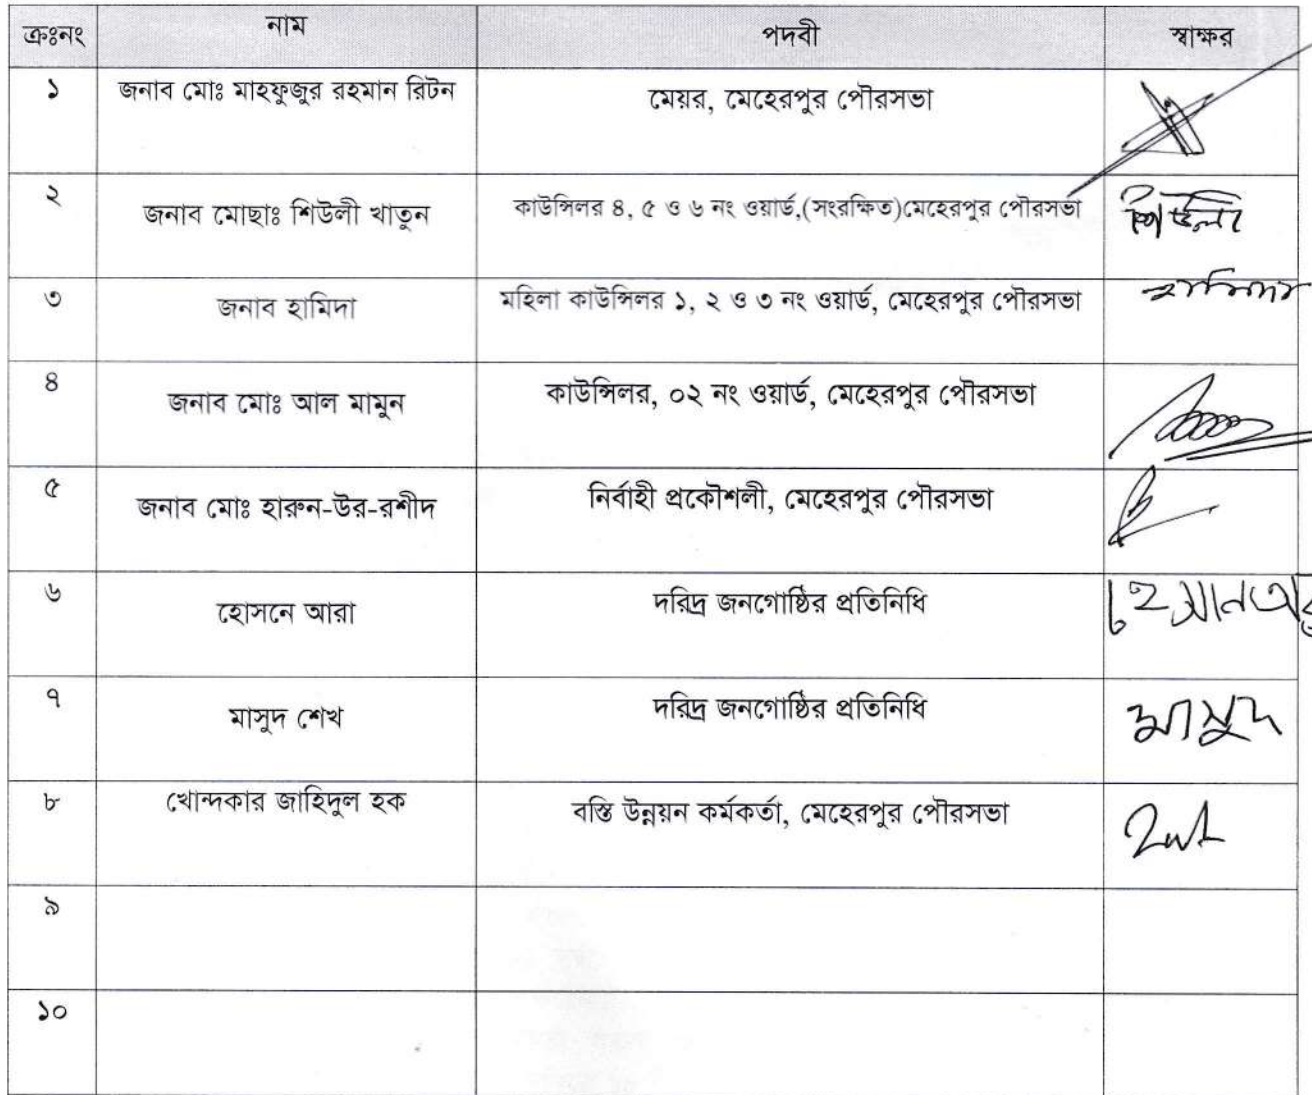 ক্রঃনং নাম পদবী স্বাক্ষর
১ জনাব মোঃ মাহফুজুর রহমান রিটন মেয়র, মেহেরপুর পৌরসভা
২ জনাব মোছাঃ শিউলী খাতুন কাউন্সিলর ৪, ৫ ও ৬ নং ওয়ার্ড,(সংরক্ষিত)মেহেরপুর পৌরসভা শিউলী
৩ জনাব হামিদা মহিলা কাউন্সিলর ১, ২ ও ৩ নং ওয়ার্ড, মেহেরপুর পৌরসভা হামিদা
৪ জনাব মোঃ আল মামুন কাউন্সিলর, ০২ নং ওয়ার্ড, মেহেরপুর পৌরসভা
৫ জনাব মোঃ হারুন-উর-রশীদ নির্বাহী প্রকৌশলী, মেহেরপুর পৌরসভা
৬ হোসনে আরা দরিদ্র জনগোষ্ঠির প্রতিনিধি
৭ মাসুদ শেখ দরিদ্র জনগোষ্ঠির প্রতিনিধি মাসুদ
৮ খোন্দকার জাহিদুল হক বস্তি উন্নয়ন কর্মকর্তা, মেহেরপুর পৌরসভা
৯
১০